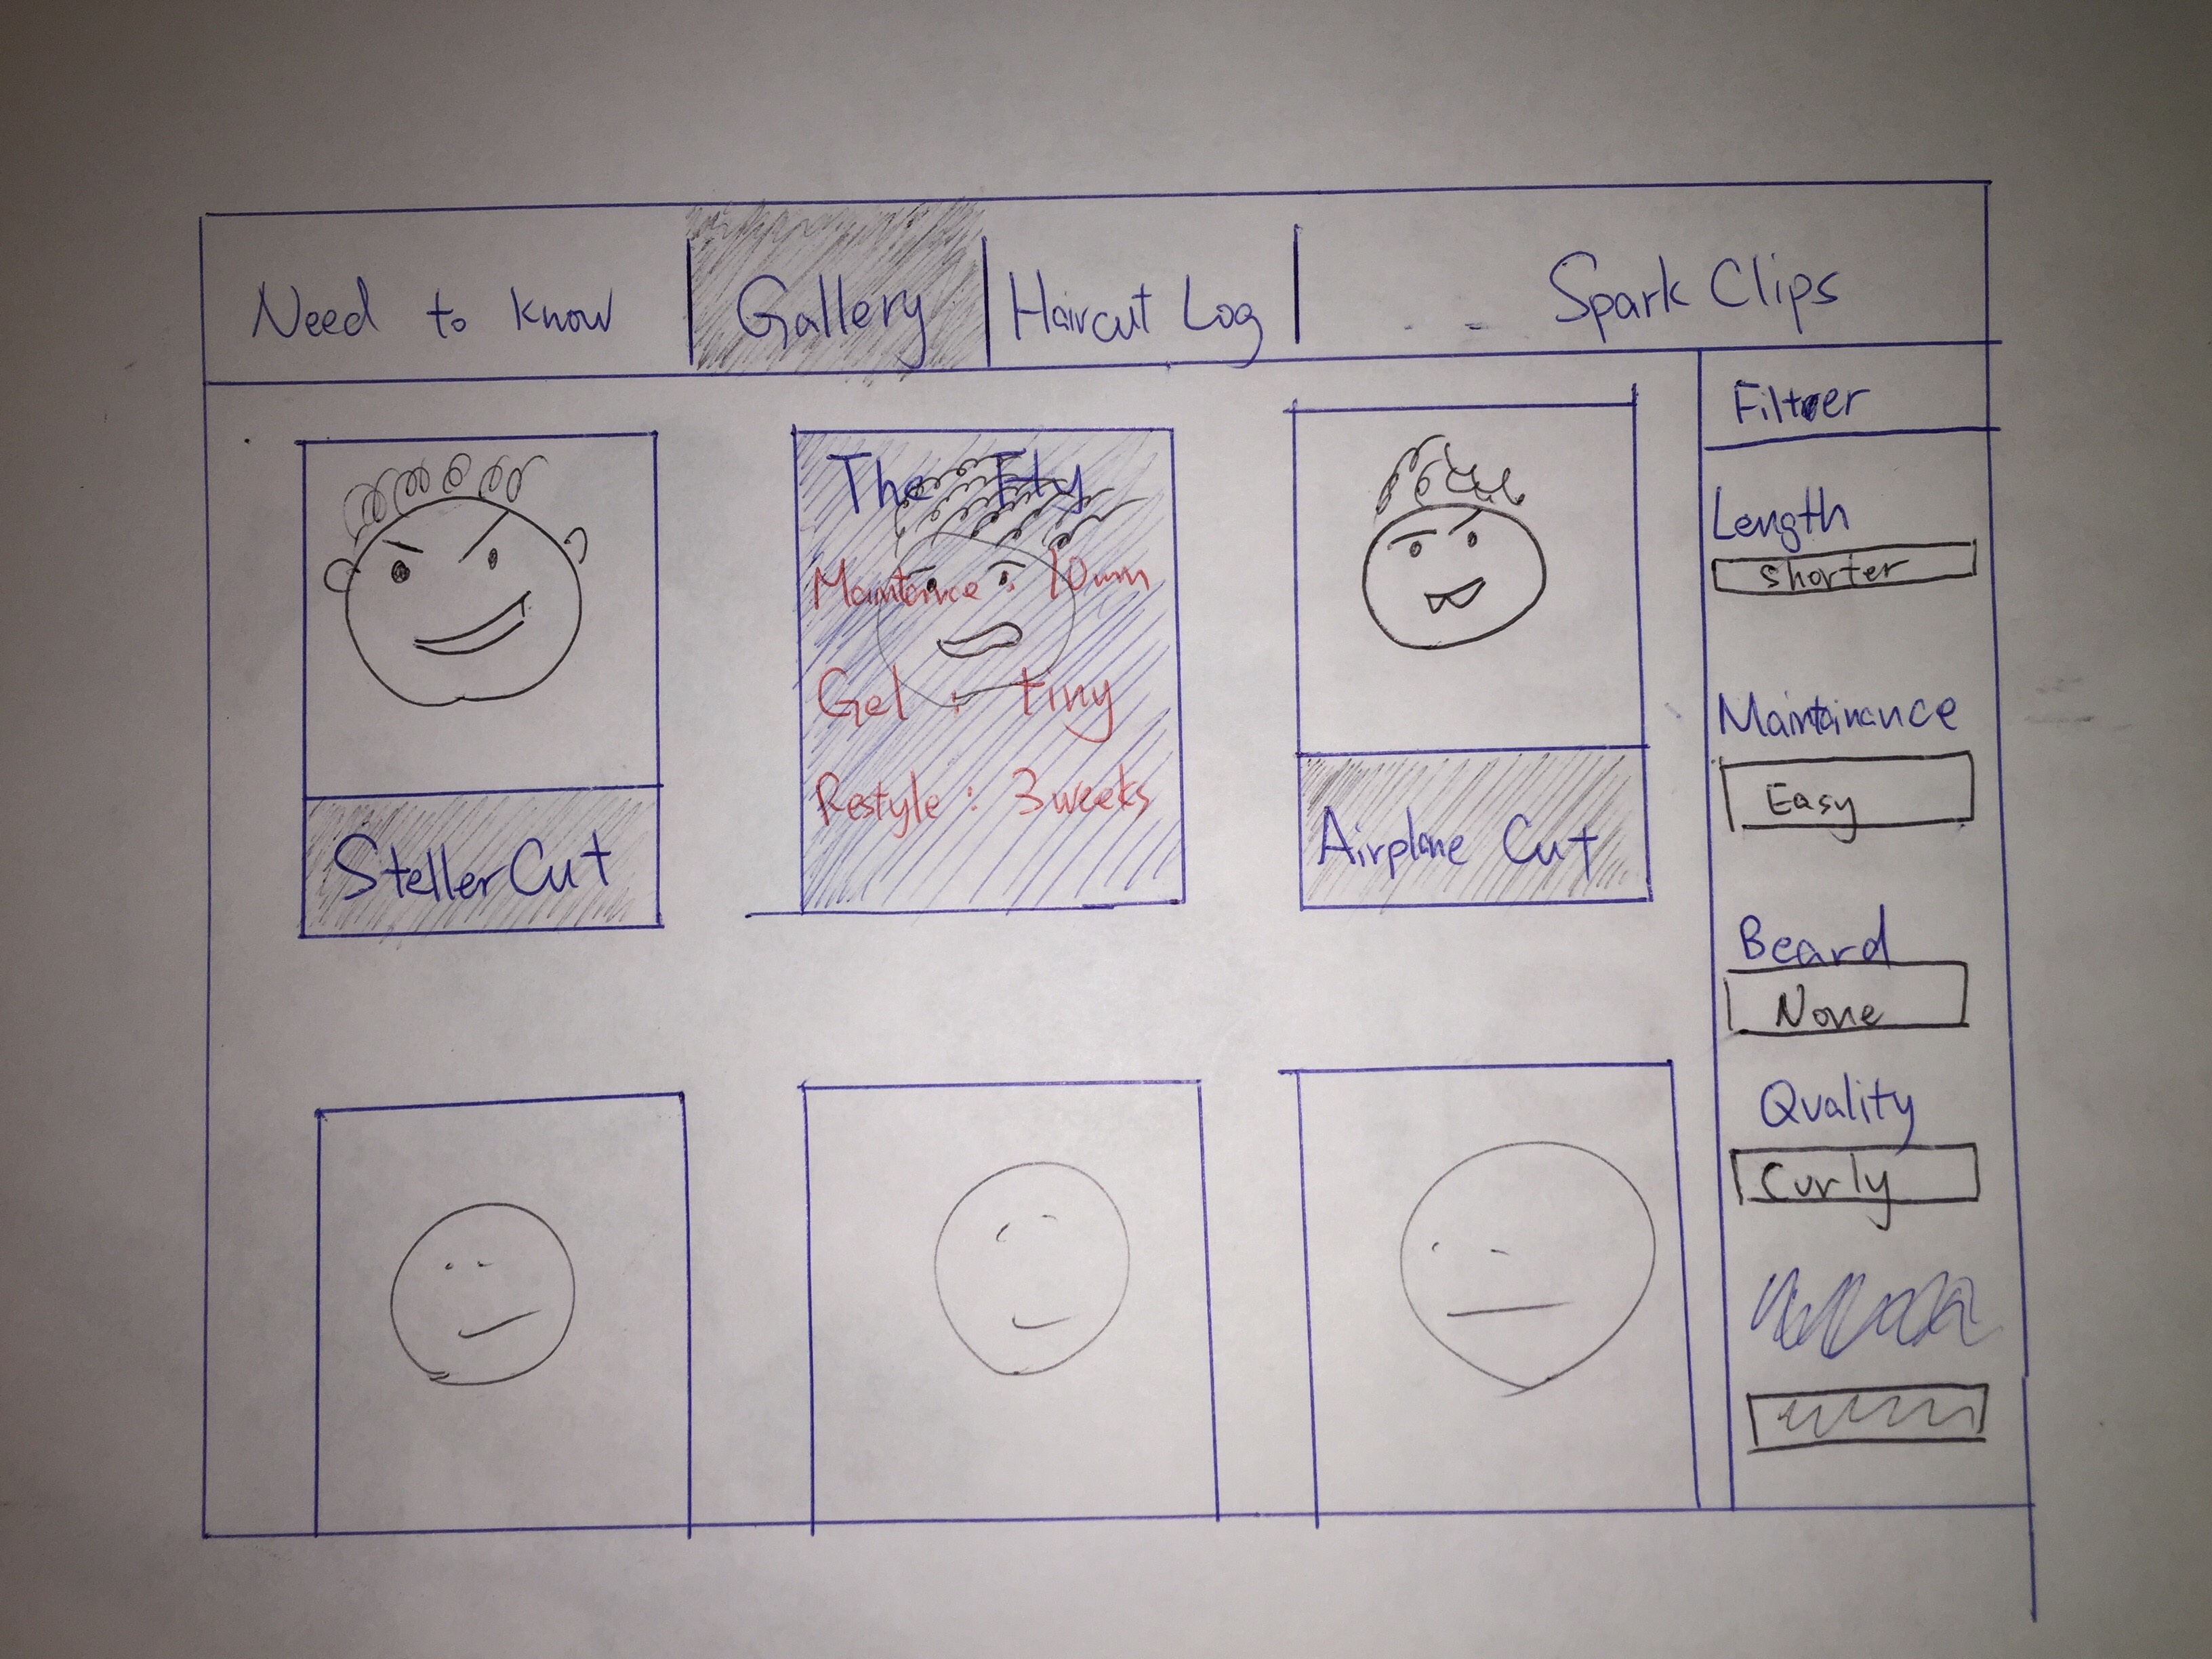 Need to know
Gallery
Haircut Log
Spark Clips
Filter
Steller Cut
The Fly
Maintence : 10min
Gel : tiny
Restyle : 3 weeks
Airplane Cut
Length
shorter
Maintainance
Easy
Beard
None
Quality
Curly